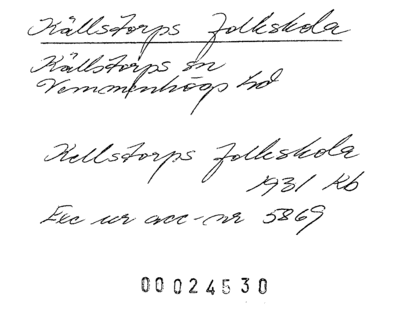 Källstorps folkskola
Källstorps sn
Vemmenhögs hd
Kellstorps folkskola
1931 Kb
Exc ur acc-nr 5869
00024530